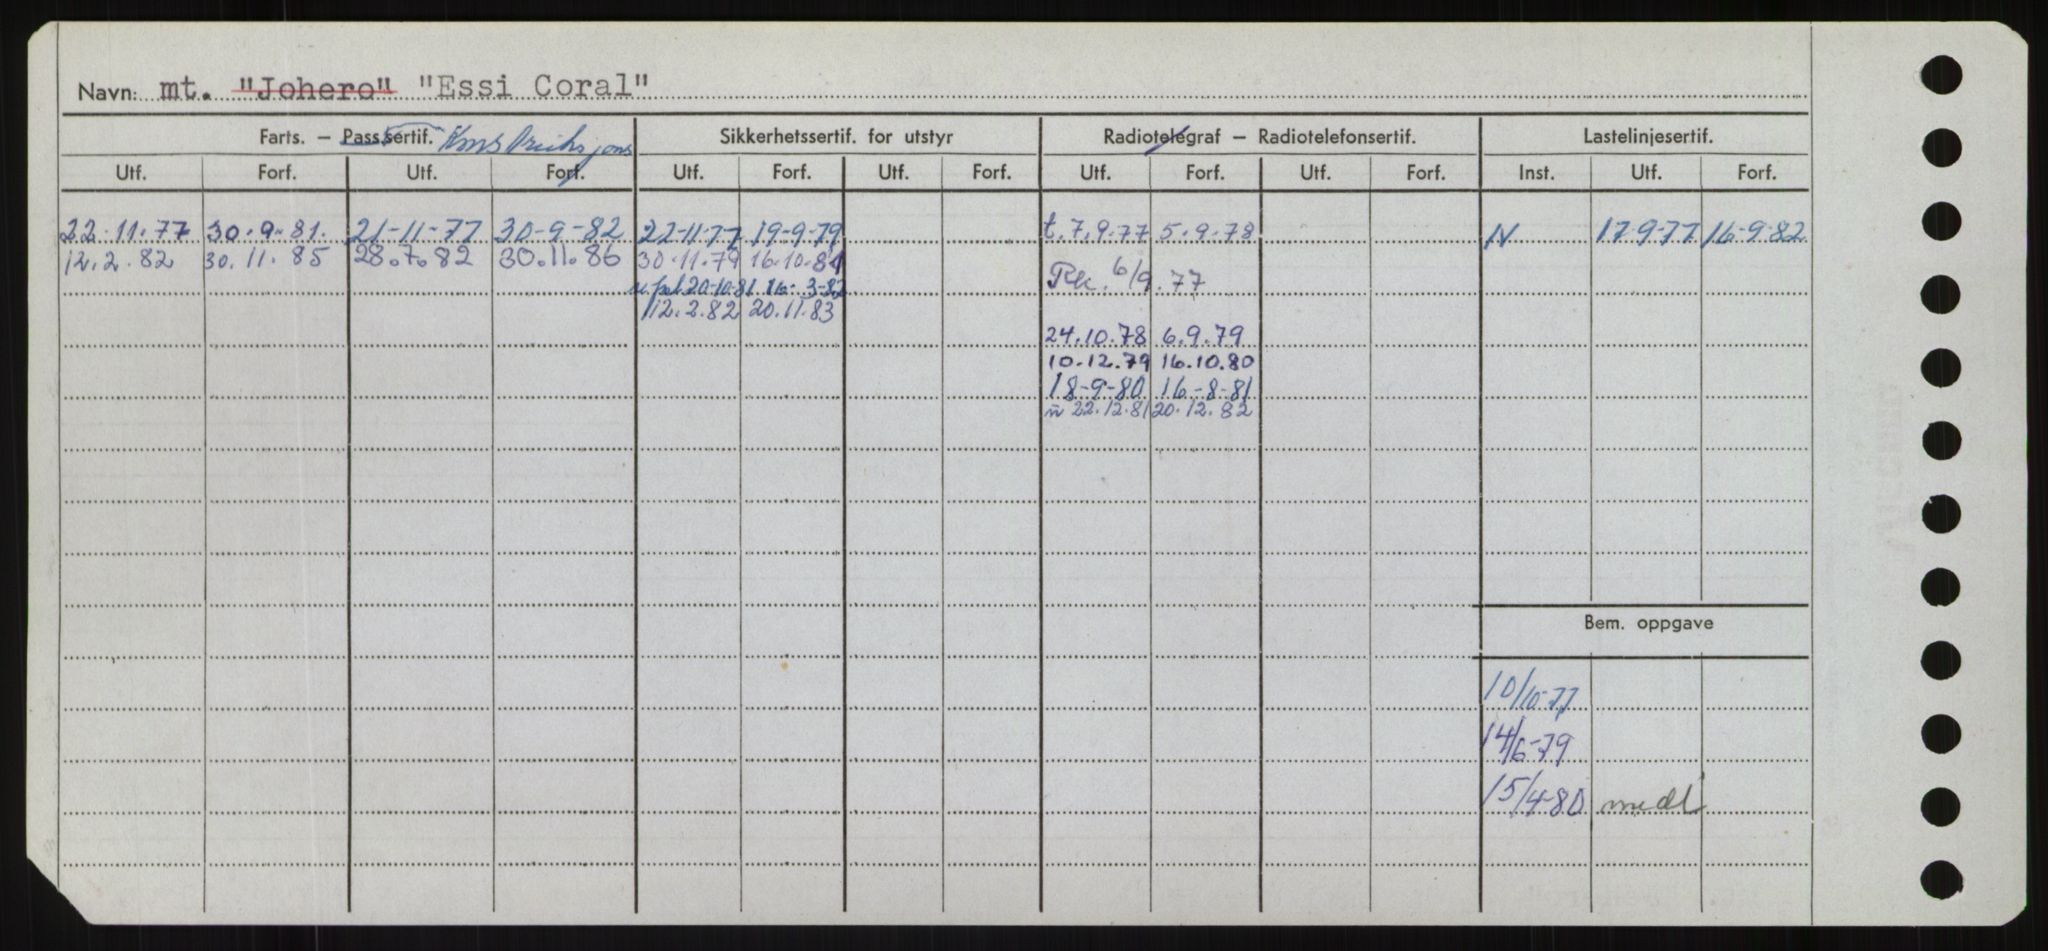 Navn: mt. "Johero" "Essi Coral"
Farts. – Pass.sertif. Sikkerhetssertif. for utstyr Radiotelegraf – Radiotelefonsertif. Lastelinjesertif.
Utf. Forf. Utf. Forf. Utf. Forf. Utf. Forf. Utf. Forf. Utf. Forf. Inst. Utf. Forf.
22.11.77 30.9.81. 21-11-77 30-9-82 22-11-77 19-9-79 t.7.9.77 5.9.78 N 17-9-77 16-9-82
12.2.82 30.11.85 28.7.82 30.11.86 30.11.79 16.10.81
Rk. 6/9.77
20-10-81 16-3-82
12.2.82 20.11.83
24.10.78 6.9.79
10.12.79 16.10.80
18-9-80 16-8-81
22.12.81 20.12.82
Bem. oppgave
10/10-77
14/6-79
15/4-80 medl